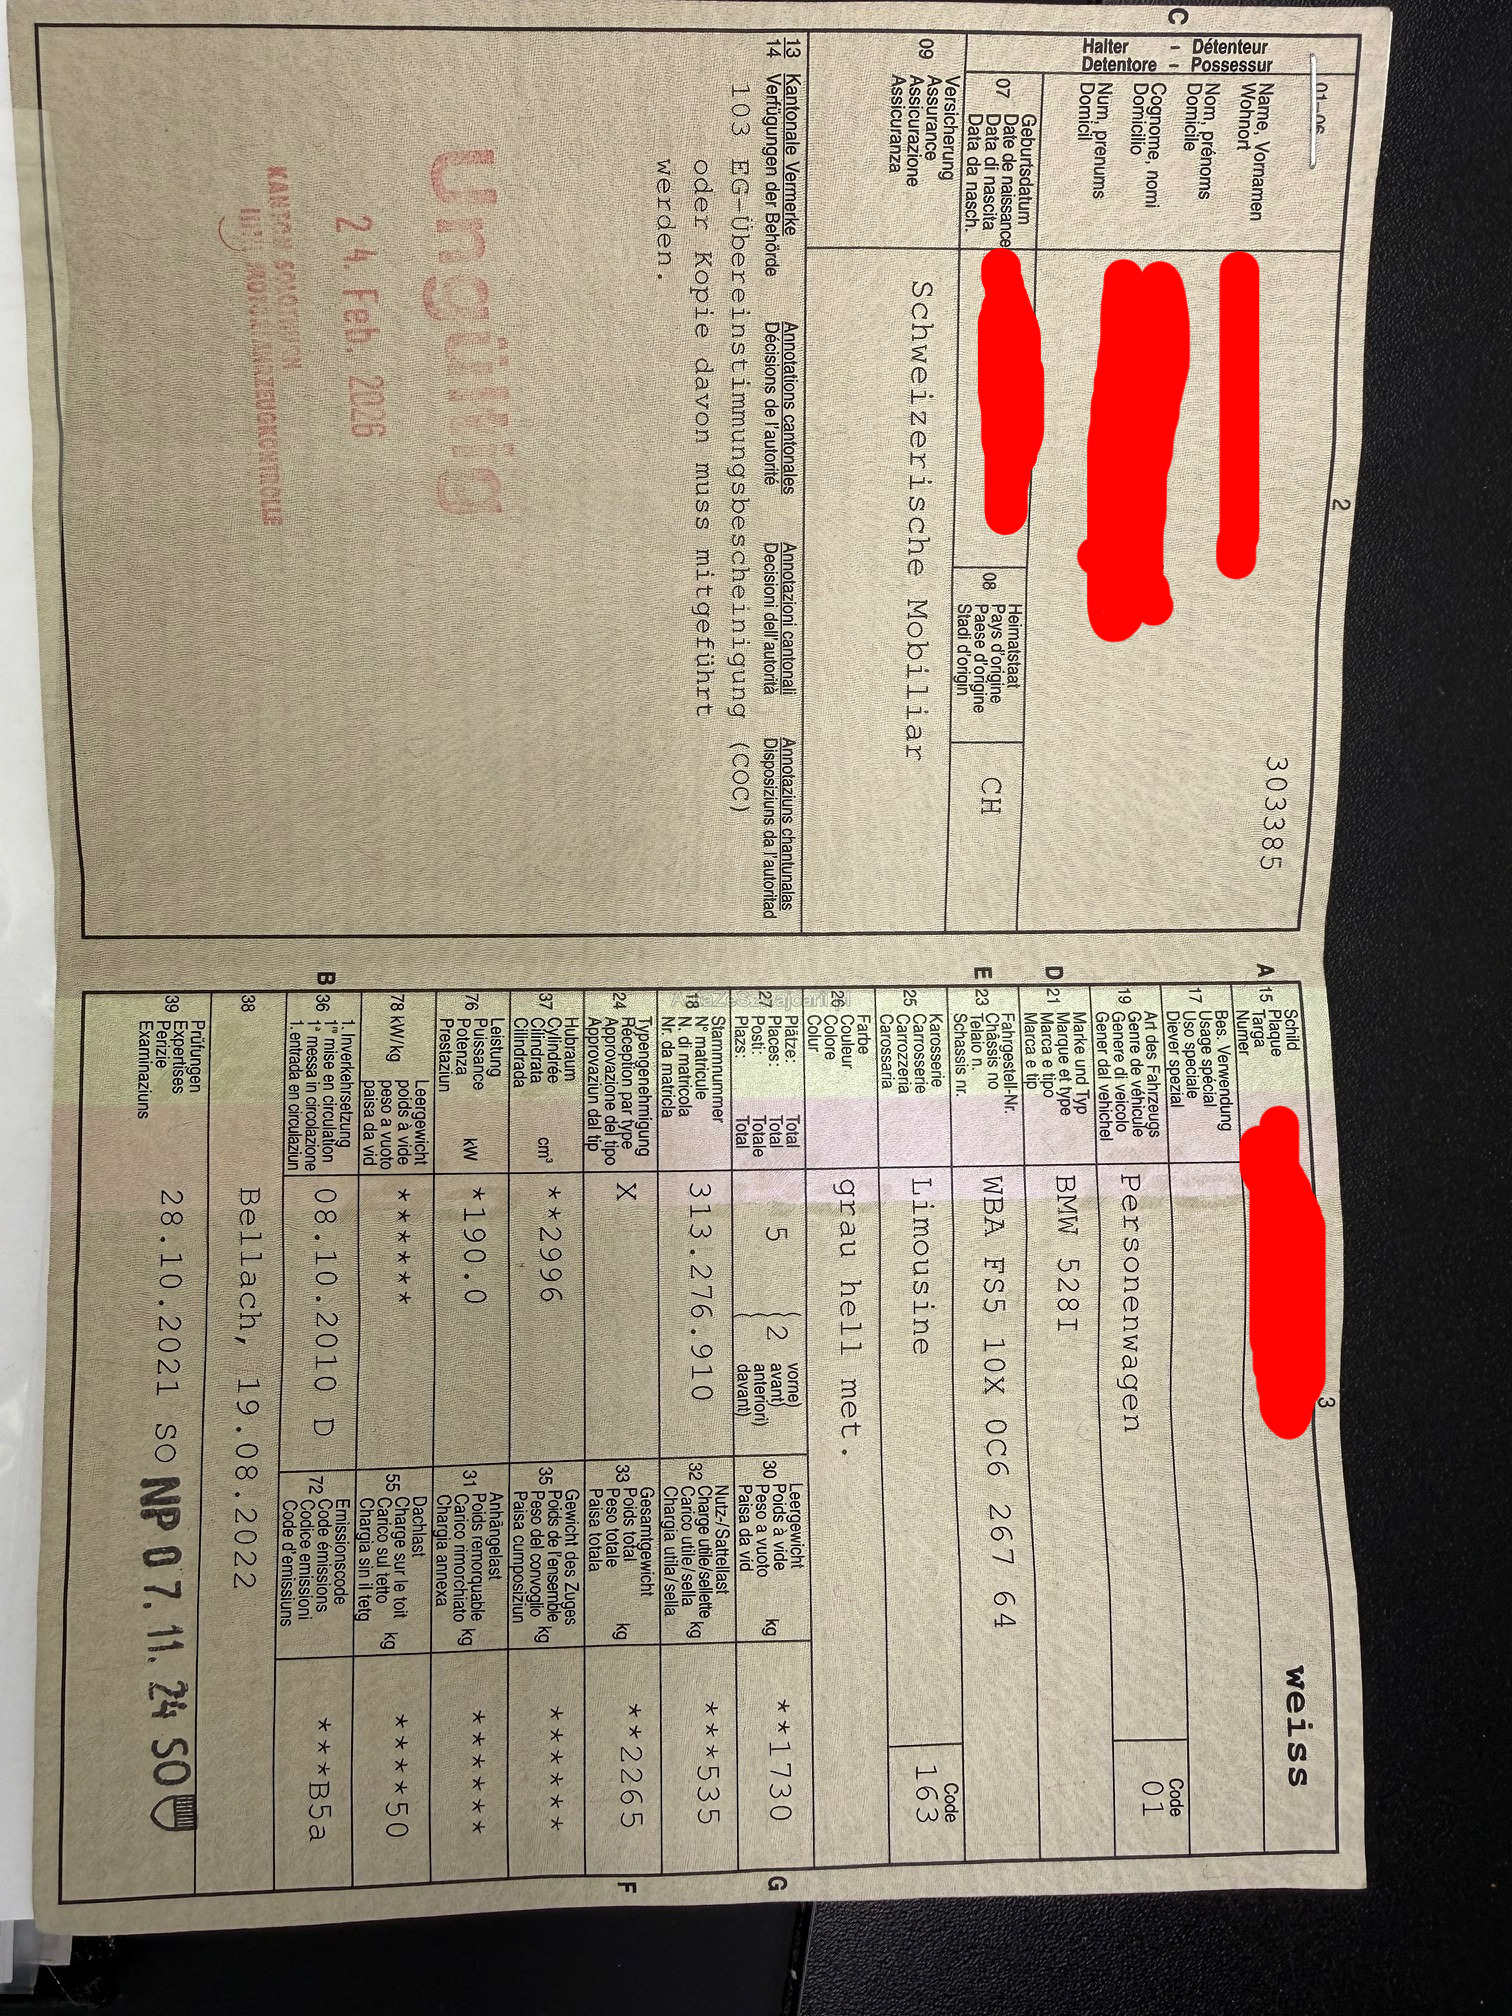 2
C
Halter - Détenteur
Detentore - Possessur
Name, Vornamen
Wohnort
Nom, prénoms
Domicile
Cognome, nomi
Domicilio
Num, prenums
Domicil
303385
07 Geburtsdatum
Date de naissance
Data di nascita
Data da nasch.
08 Heimatstaat
Pays d'origine
Paese d'origine
Stadi d'origin
CH
09 Versicherung
Assurance
Assicurazione
Assicuranza
Schweizerische Mobiliar
13 Kantonale Vermerke Annotations cantonales Annotazioni cantonali Annotaziuns chantunalas
14 Verfügungen der Behörde Décisions de l'autorité Decisioni dell'autorità Disposiziuns da l'autoritad
103 EG-Übereinstimmungsbescheinigung (COC)
oder Kopie davon muss mitgeführt
werden.
Ungültig
24. Feb. 2026
KANTON SOLOTHURN
3
A
15 Schild
Plaque
Targa
Numer
weiss
17 Bes. Verwendung
Usage spécial
Uso speciale
Diever spezial
19 Art des Fahrzeugs
Genre de véhicule
Genere di veicolo
Gener dal vehichel
Personenwagen
Code
01
D
21 Marke und Typ
Marque et type
Marca e tipo
Marca e tip
BMW 528I
E
23 Fahrgestell-Nr.
Châssis no
Telaio n.
Schassis nr.
WBA FS5 10X 0C6 267 64
25 Karosserie
Carrosserie
Carrozzeria
Carrossaria
Limousine
Code
163
26 Farbe
Couleur
Colore
Colur
grau hell met.
27 Plätze: Total
Places: Total
Posti: Totale
Plazs: Total
5
2
vorne)
avant)
anteriori)
davant)
30 Leergewicht
Poids à vide
Peso a vuoto
Paisa da vid
kg
**1730
G
18 Stammnummer
N° matricule
N. di matricola
Nr. da matricla
313.276.910
32 Nutz-/Sattellast
Charge utile/sellette
Carico utile/sella
Chargia utila/sella
kg
***535
24 Typengenehmigung
Réception par type
Approvazione del tipo
Approvaziun dal tip
X
33 Gesamtgewicht
Poids total
Peso totale
Paisa totala
kg
**2265
F
37 Hubraum
Cylindrée
Cilindrata
Cilindrada
cm³
**2996
35 Gewicht des Zuges
Poids de l'ensemble
Peso del convoglio
Paisa cumposiziun
kg
******
76 Leistung
Puissance
Potenza
Prestaziun
kW
*190.0
31 Anhängelast
Poids remorquable
Carico rimorchiato
Chargia annexa
kg
******
78 kW/kg
Leergewicht
poids à vide
peso a vuoto
paisa da vid
*****
55 Dachlast
Charge sur le toit
Carico sul tetto
Chargia sin il tetg
kg
****50
B
36 1. Inverkehrsetzung
1re mise en circulation
1a messa in circolazione
1. entrada en circulaziun
08.10.2010 D
72 Emissionscode
Code émissions
Codice emissioni
Code d'emissiuns
***B5a
38
Bellach, 19.08.2022
39 Prüfungen
Expertises
Perizie
Examinaziuns
28.10.2021 SO NP 07.11.24 SO